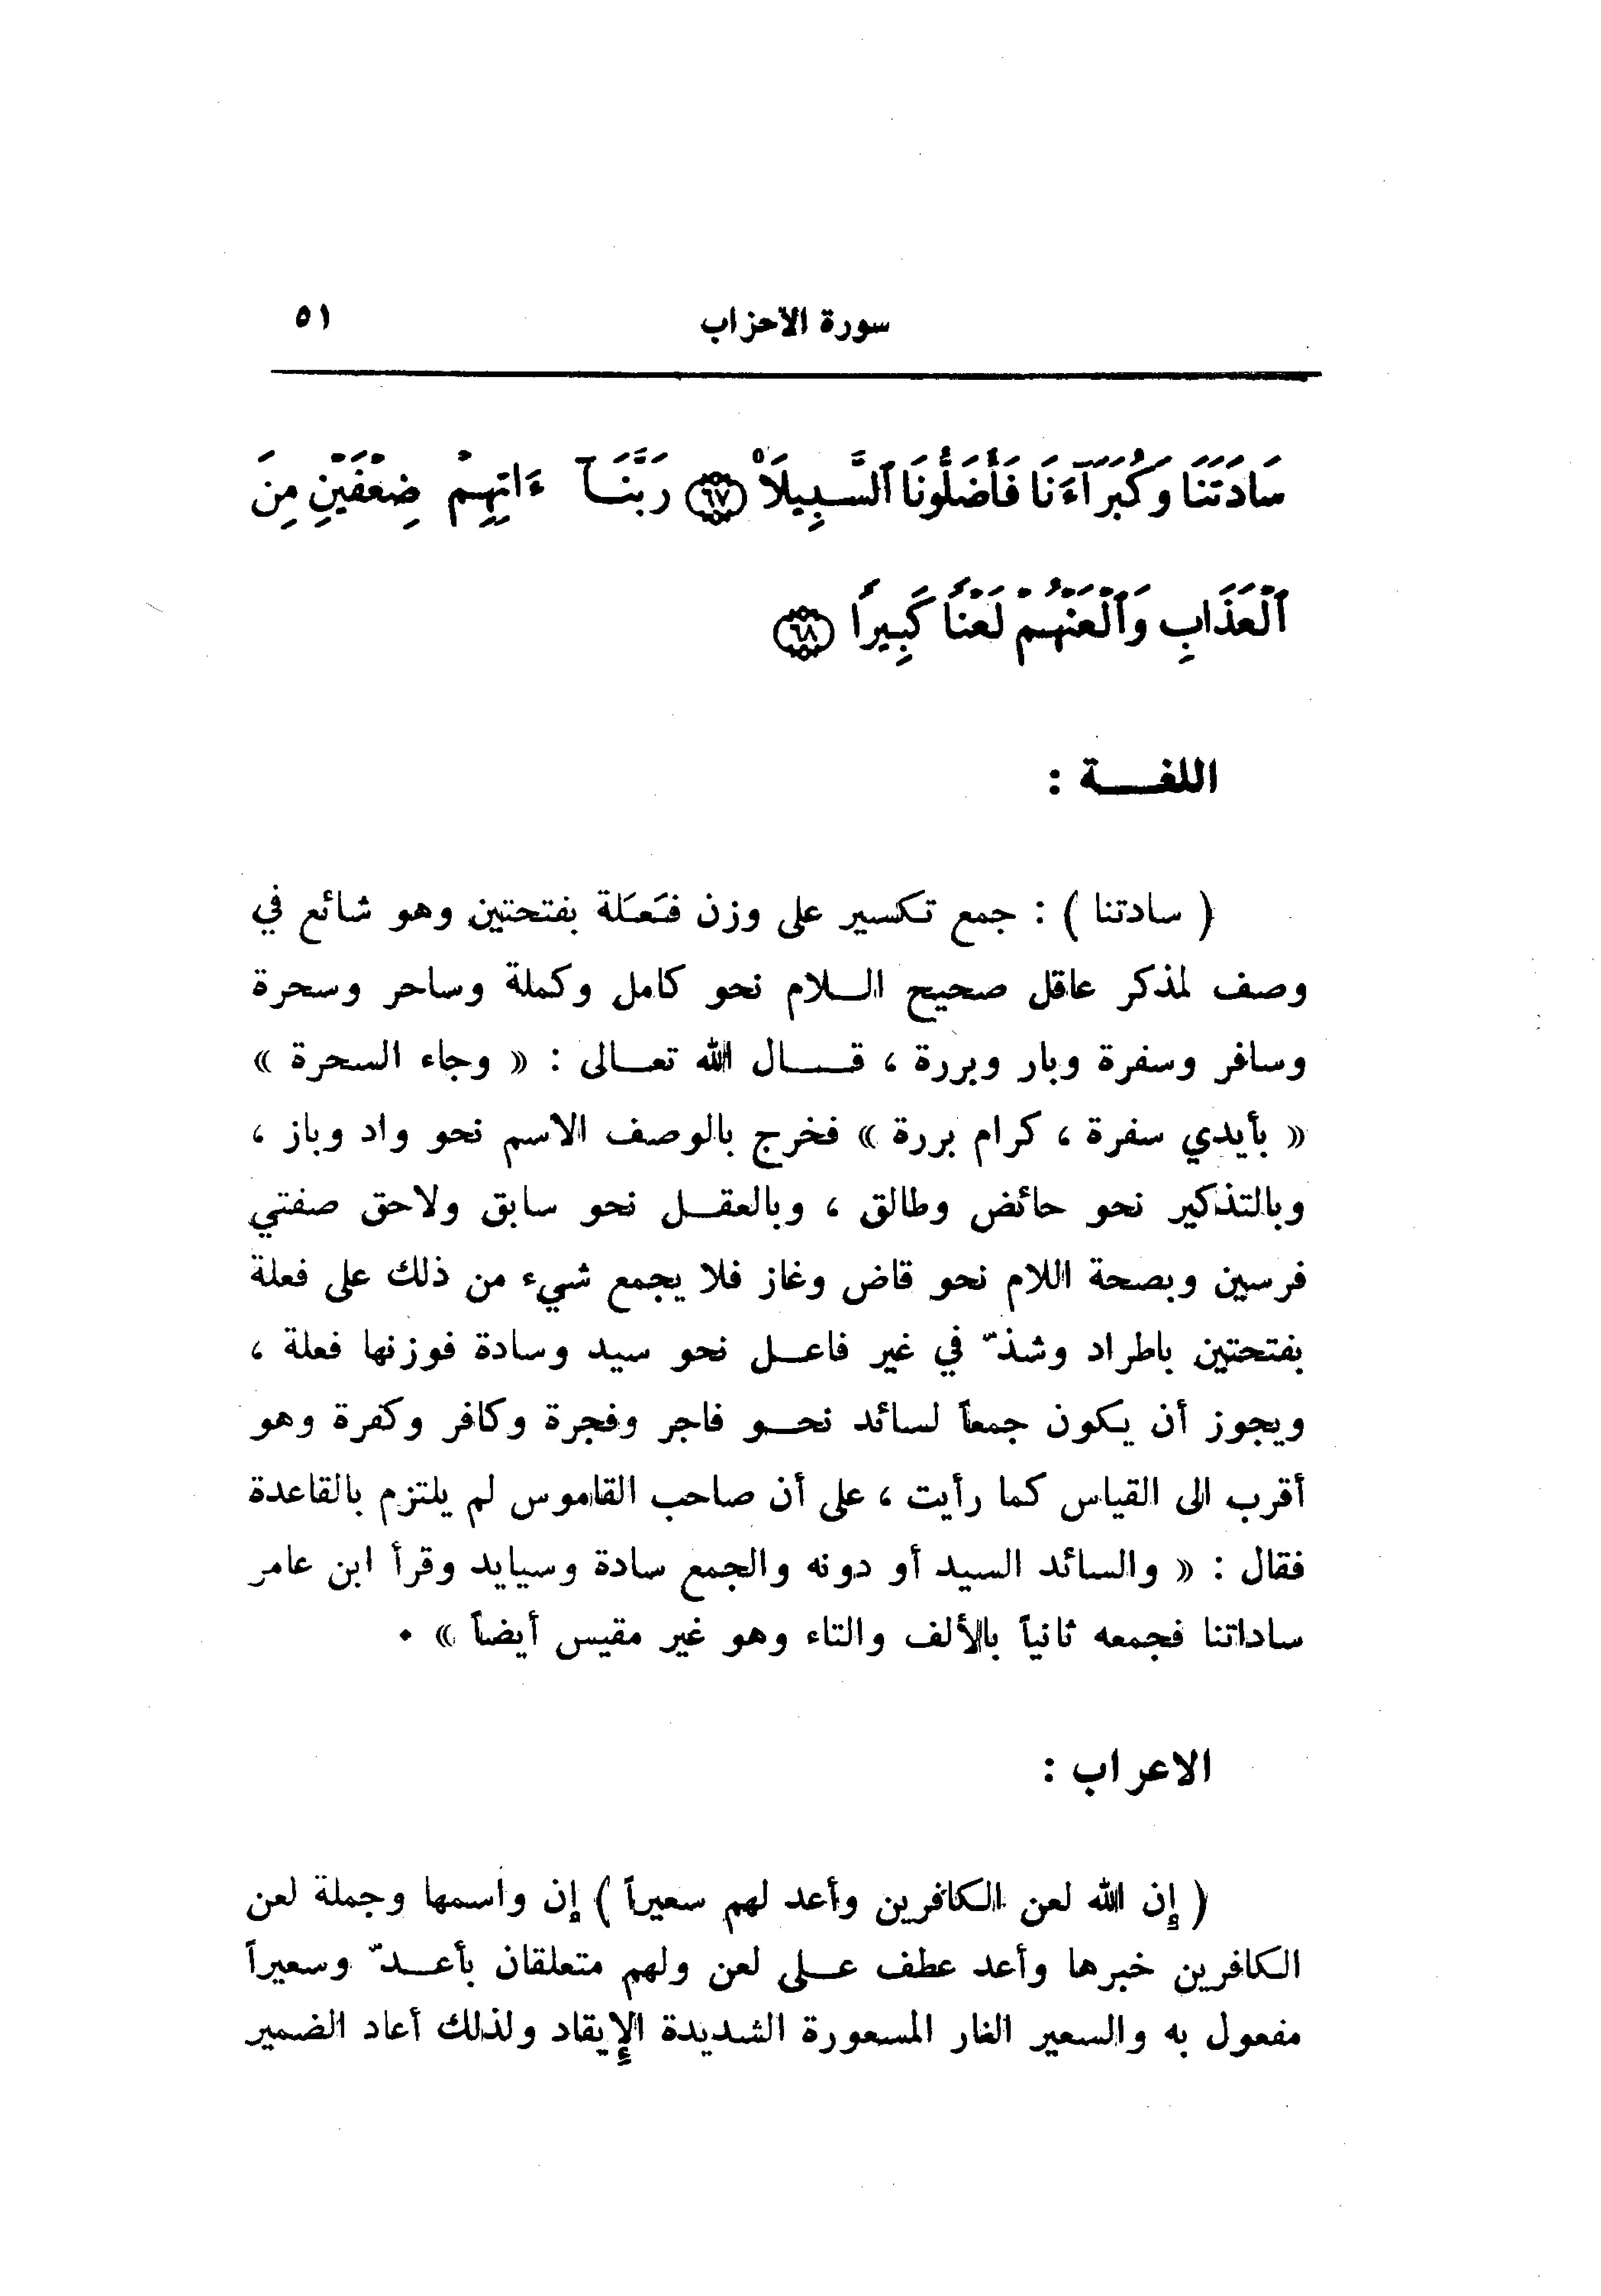 سورة الاحزاب ٥١
سَادَتَنَا وَكُبَرَآءَنَا فَأَضَلُّونَا ٱلسَّبِيلَا۠ ٦٧ رَبَّنَآ ءَاتِهِمْ ضِعْفَيْنِ مِنَ
ٱلْعَذَابِ وَٱلْعَنْهُمْ لَعْنًا كَبِيرًا ٦٨
اللغـــة :
( سادتنا ) : جمع تكسير على وزن فَعَلة بفتحتين وهو شائع في
وصف لمذكر عاقل صحيح الـلام نحو كامل وكملة وساحر وسحرة
وسافر وسفرة وبار وبررة ، قـــال الله تعـالى : « وجاء السحرة »
« بأيدي سفرة ، كرام بررة » فخرج بالوصف الاسم نحو واد وباز ،
وبالتذكير نحو حائض وطالق ، وبالعقـل نحو سابق ولاحق صفتي
فرسين وبصحة اللام نحو قاض وغاز فلا يجمع شيء من ذلك على فعلة
بفتحتين باطراد وشذّ في غير فاعـل نحو سيد وسادة فوزنها فعلة ،
ويجوز أن يكون جمعاً لسائد نحـو فاجر وفجرة وكافر وكفرة وهو
أقرب الى القياس كما رأيت ، على أن صاحب القاموس لم يلتزم بالقاعدة
فقال : « والسائد السيد أو دونه والجمع سادة وسيايد وقرأ ابن عامر
ساداتنا فجمعه ثانياً بالألف والتاء وهو غير مقيس أيضاً » .
الاعراب :
( إن الله لعن الكافرين وأعد لهم سعيراً ) إن واسمها وجملة لعن
الكافرين خبرها وأعد عطف عـلى لعن ولهم متعلقان بأعـدّ وسعيراً
مفعول به والسعير النار المسعورة الشديدة الإيقاد ولذلك أعاد الضمير